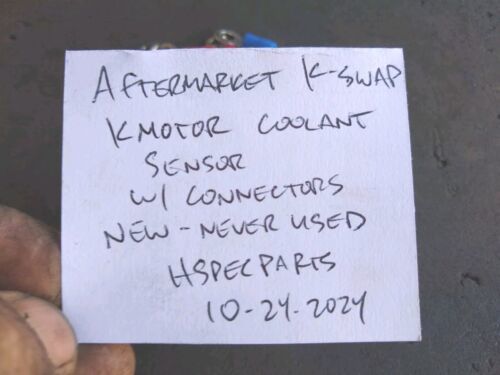 AFTERMARKET K-SWAP
KMOTOR COOLANT
SENSOR
W/ CONNECTORS
NEW - NEVER USED
HSPECPARTS
10-24-2024